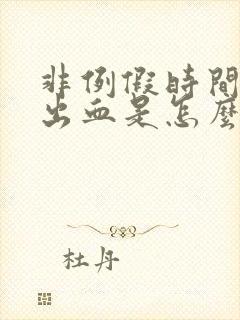 非例假時間
出血是怎麼
杜丹